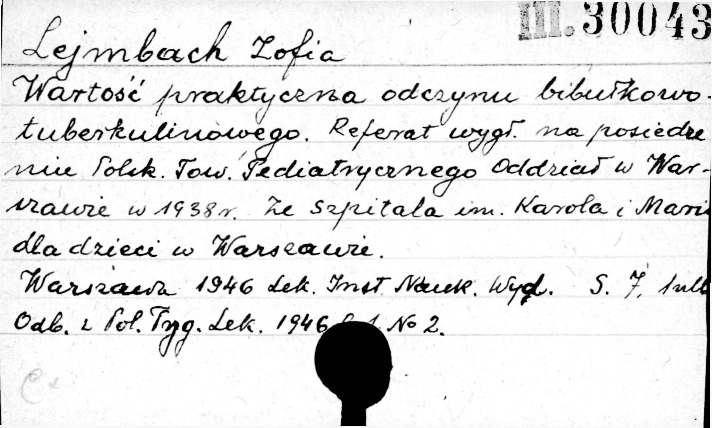 III.30043
Lejmbach Zofia
Wartość praktyczna odczynu bibułkowo-
tuberkulinowego. Referat wygł. na posiedze
niu Polsk. Tow. Pediatrycznego Oddział w War-
szawie w 1938 r. Ze szpitala im. Karola i Marii
dla dzieci w Warszawie.
Warszawa 1946 Lek. Inst. Nauk. Wyd. S. 7,
Odb. z Pol. Tyg. Lek. 1946 № 2.